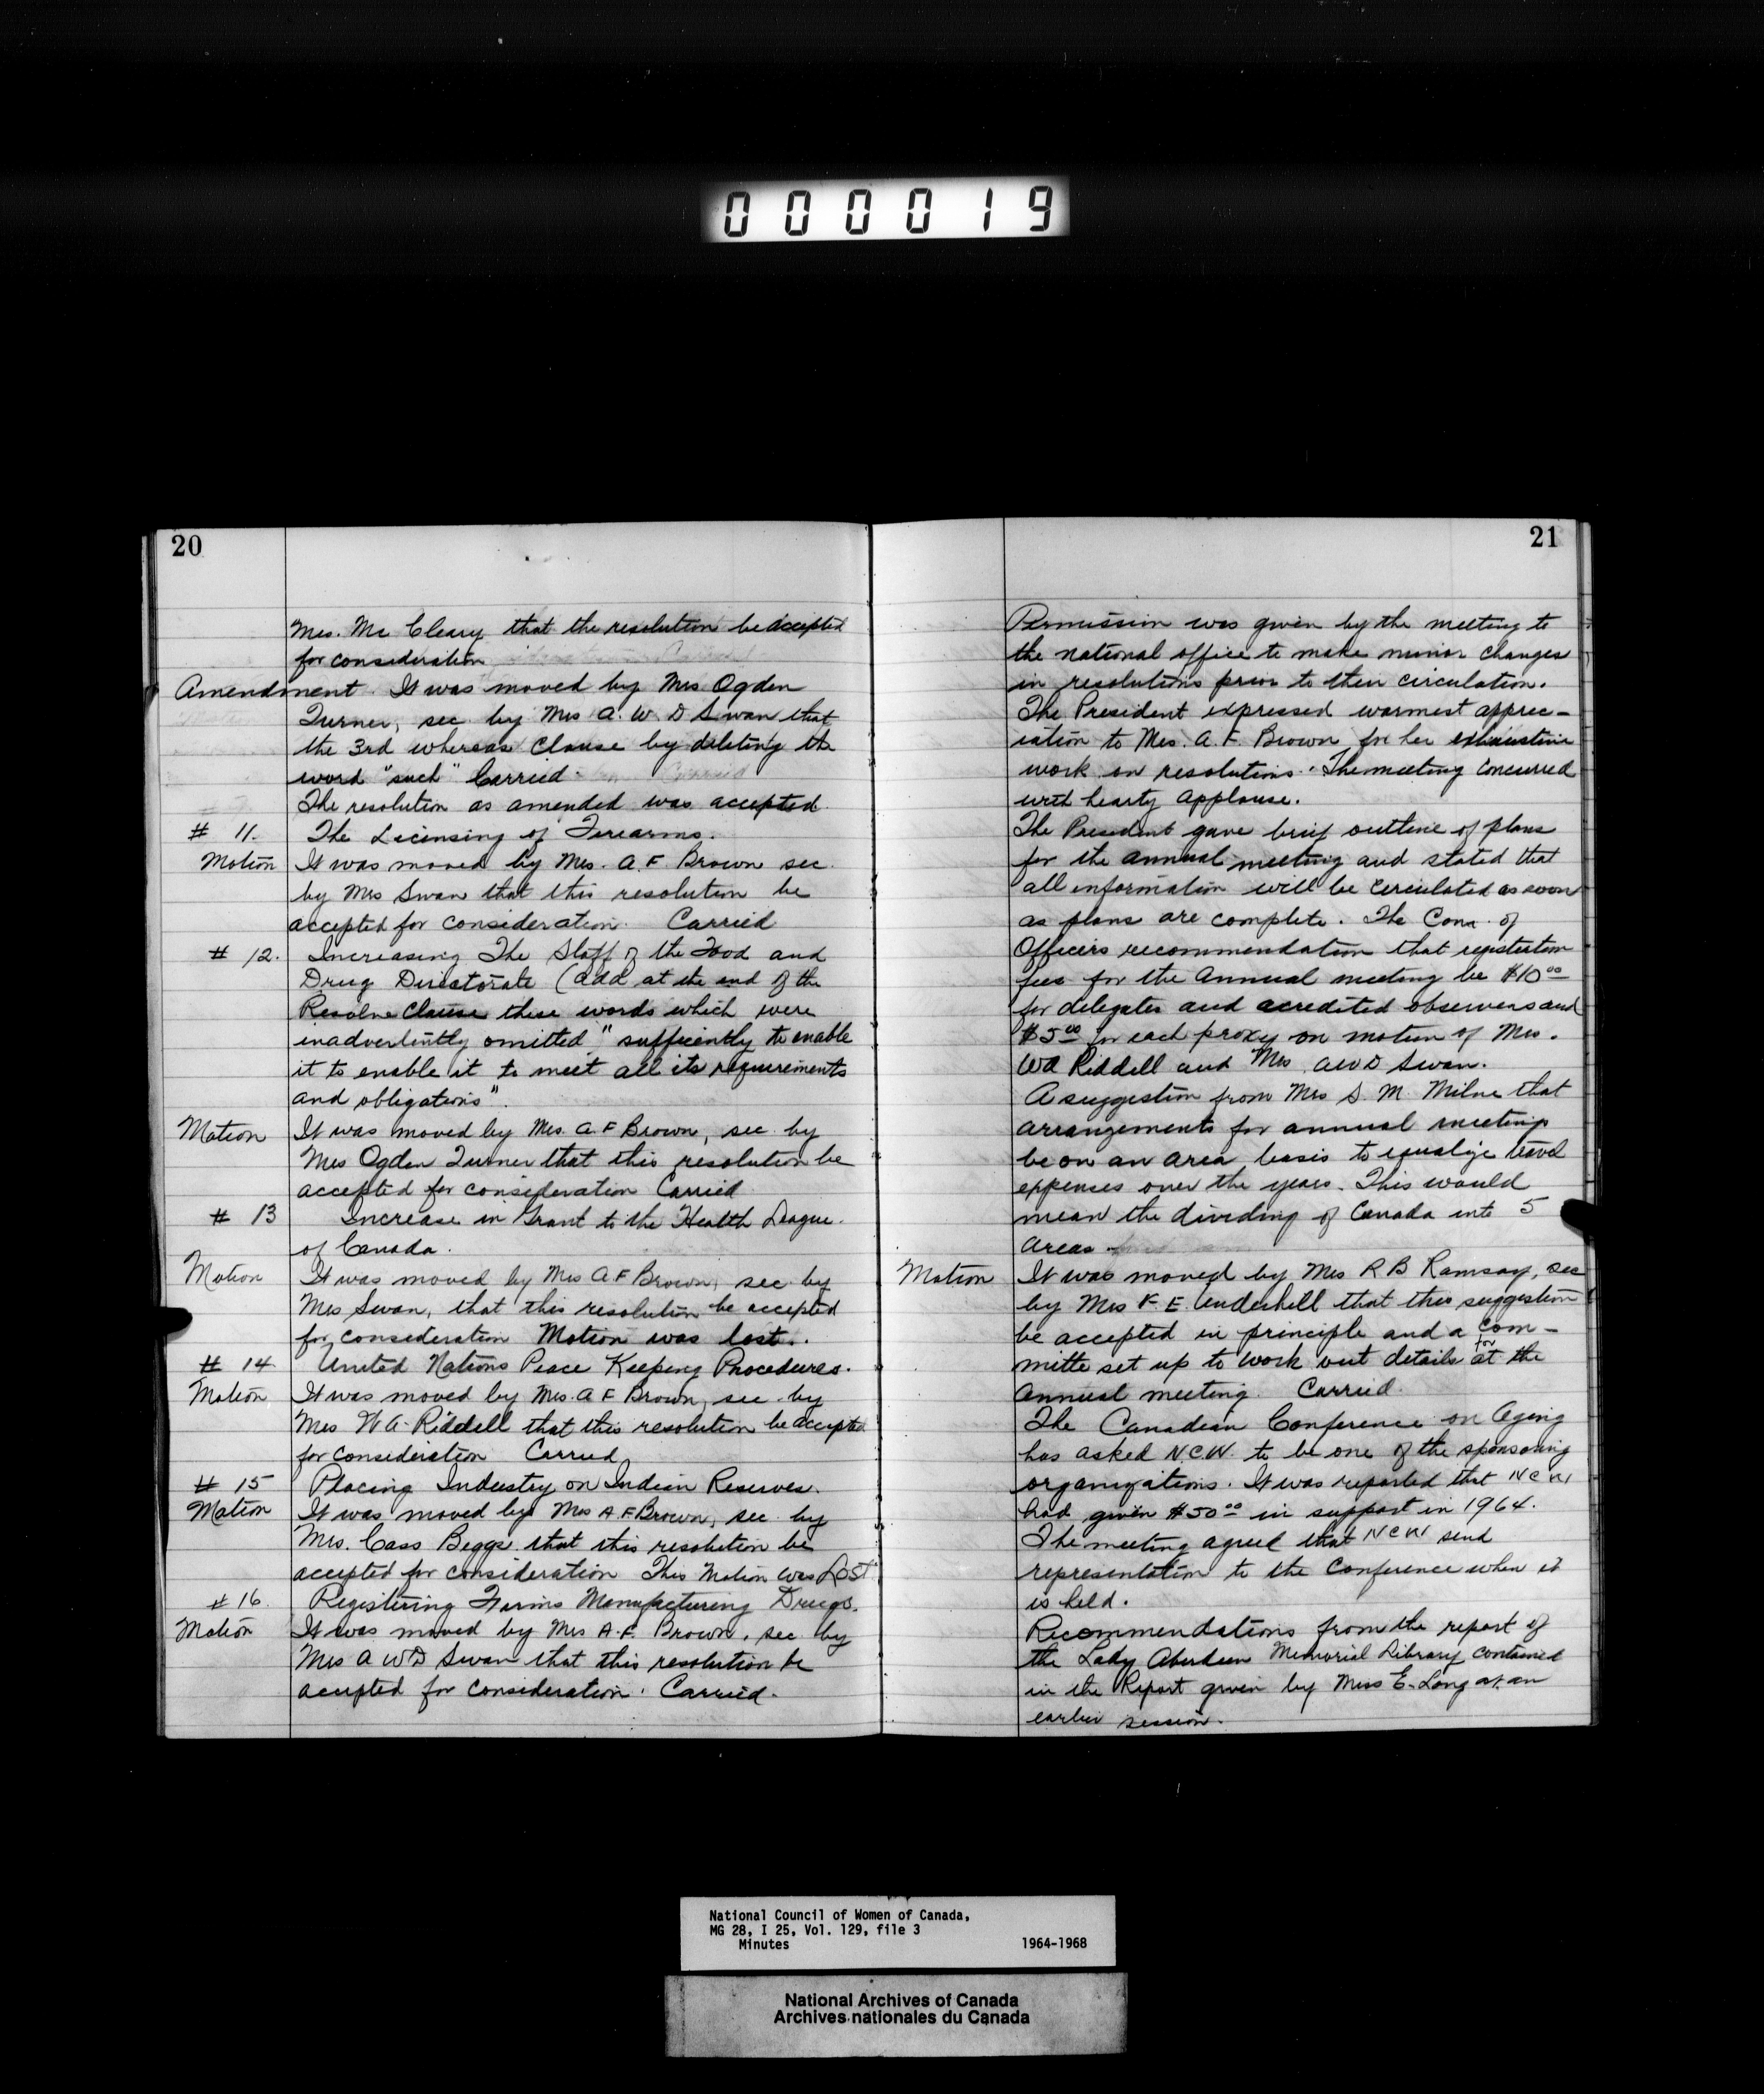 000019
20
Mrs. Mc Cleary that the resolution be accepted
for consideration
Amendment. It was moved by Mrs Ogden
Turner, sec by Mrs A. W. D Swan that
the 3rd whereas Clause by deleting the
word "such" Carried
The resolution as amended was accepted.
# 11. The Licensing of Firearms.
Motion It was moved by Mrs. A. F. Brown sec.
by Mrs Swan that this resolution be
accepted for consideration. Carried
# 12. Increasing The Staff of the Food and
Drug Directorate (add at the end of the
Resolve Clause these words which were
inadvertently omitted "sufficiently to enable
it to enable it to meet all its requirements
and obligations".
Motion It was moved by Mrs. A. F Brown, sec. by
Mrs Ogden Turner that this resolution be
accepted for consideration Carried
# 13 Increase in Grant to the Health League.
of Canada.
Motion It was moved by Mrs A F Brown, sec. by
Mrs Swan, that this resolution be accepted
for consideration Motion was lost.
# 14 United Nations Peace Keeping Procedures.
Motion It was moved by Mrs. A F Brown, sec. by
Mrs W A. Riddell that this resolution be accepted
for consideration Carried
# 15 Placing Industry on Indian Reserves.
Motion It was moved by Mrs A. F Brown, sec. by
Mrs. Cass Beggs that this resolution be
accepted for consideration This Motion was Lost
# 16. Registering Firms Manufacturing Drugs.
Motion It was moved by Mrs A. F. Brown, sec. by
Mrs A W D Swan that this resolution be
accepted for consideration. Carried.
21
Permission was given by the meeting to
the national office to make minor changes
in resolutions prior to their circulation.
The President expressed warmest apprec-
iation to Mrs. A. F. Brown for her exhaustive
work on resolutions. The meeting concurred
with hearty applause.
The President gave brief outline of plans
for the annual meeting and stated that
all information will be circulated as soon
as plans are complete. The Com. of
Officers recommendation that registration
fees for the Annual meeting be $10.00
for delegates and acredited observers and
$5.00 for each proxy on motion of Mrs.
WA Riddell and Mrs AWD Swan.
A suggestion from Mrs S. M. Milne that
arrangements for annual meetings
be on an area basis to equalize travel
expenses over the years. This would
mean the dividing of Canada into 5
areas.
Motion It was moved by Mrs R B Ramsay, sec
by Mrs F. E. Underhill that this suggestion
be accepted in principle and a com-
mitte set up to work out details for at the
Annual meeting. Carried.
The Canadian Conference on Aging
has asked N.C.W. to be one of the sponsoring
organizations. It was reported that N C W
had given $50.00 in support in 1964.
The meeting agreed that N C W send
representation to the Conference when it
is held.
Recommendations from the report of
the Lady Aberdeen Memorial Library contained
in the Report given by Miss E. Long at an
earlier session.
National Council of Women of Canada,
MG 28, I 25, Vol. 129, file 3
Minutes 1964-1968
National Archives of Canada
Archives nationales du Canada